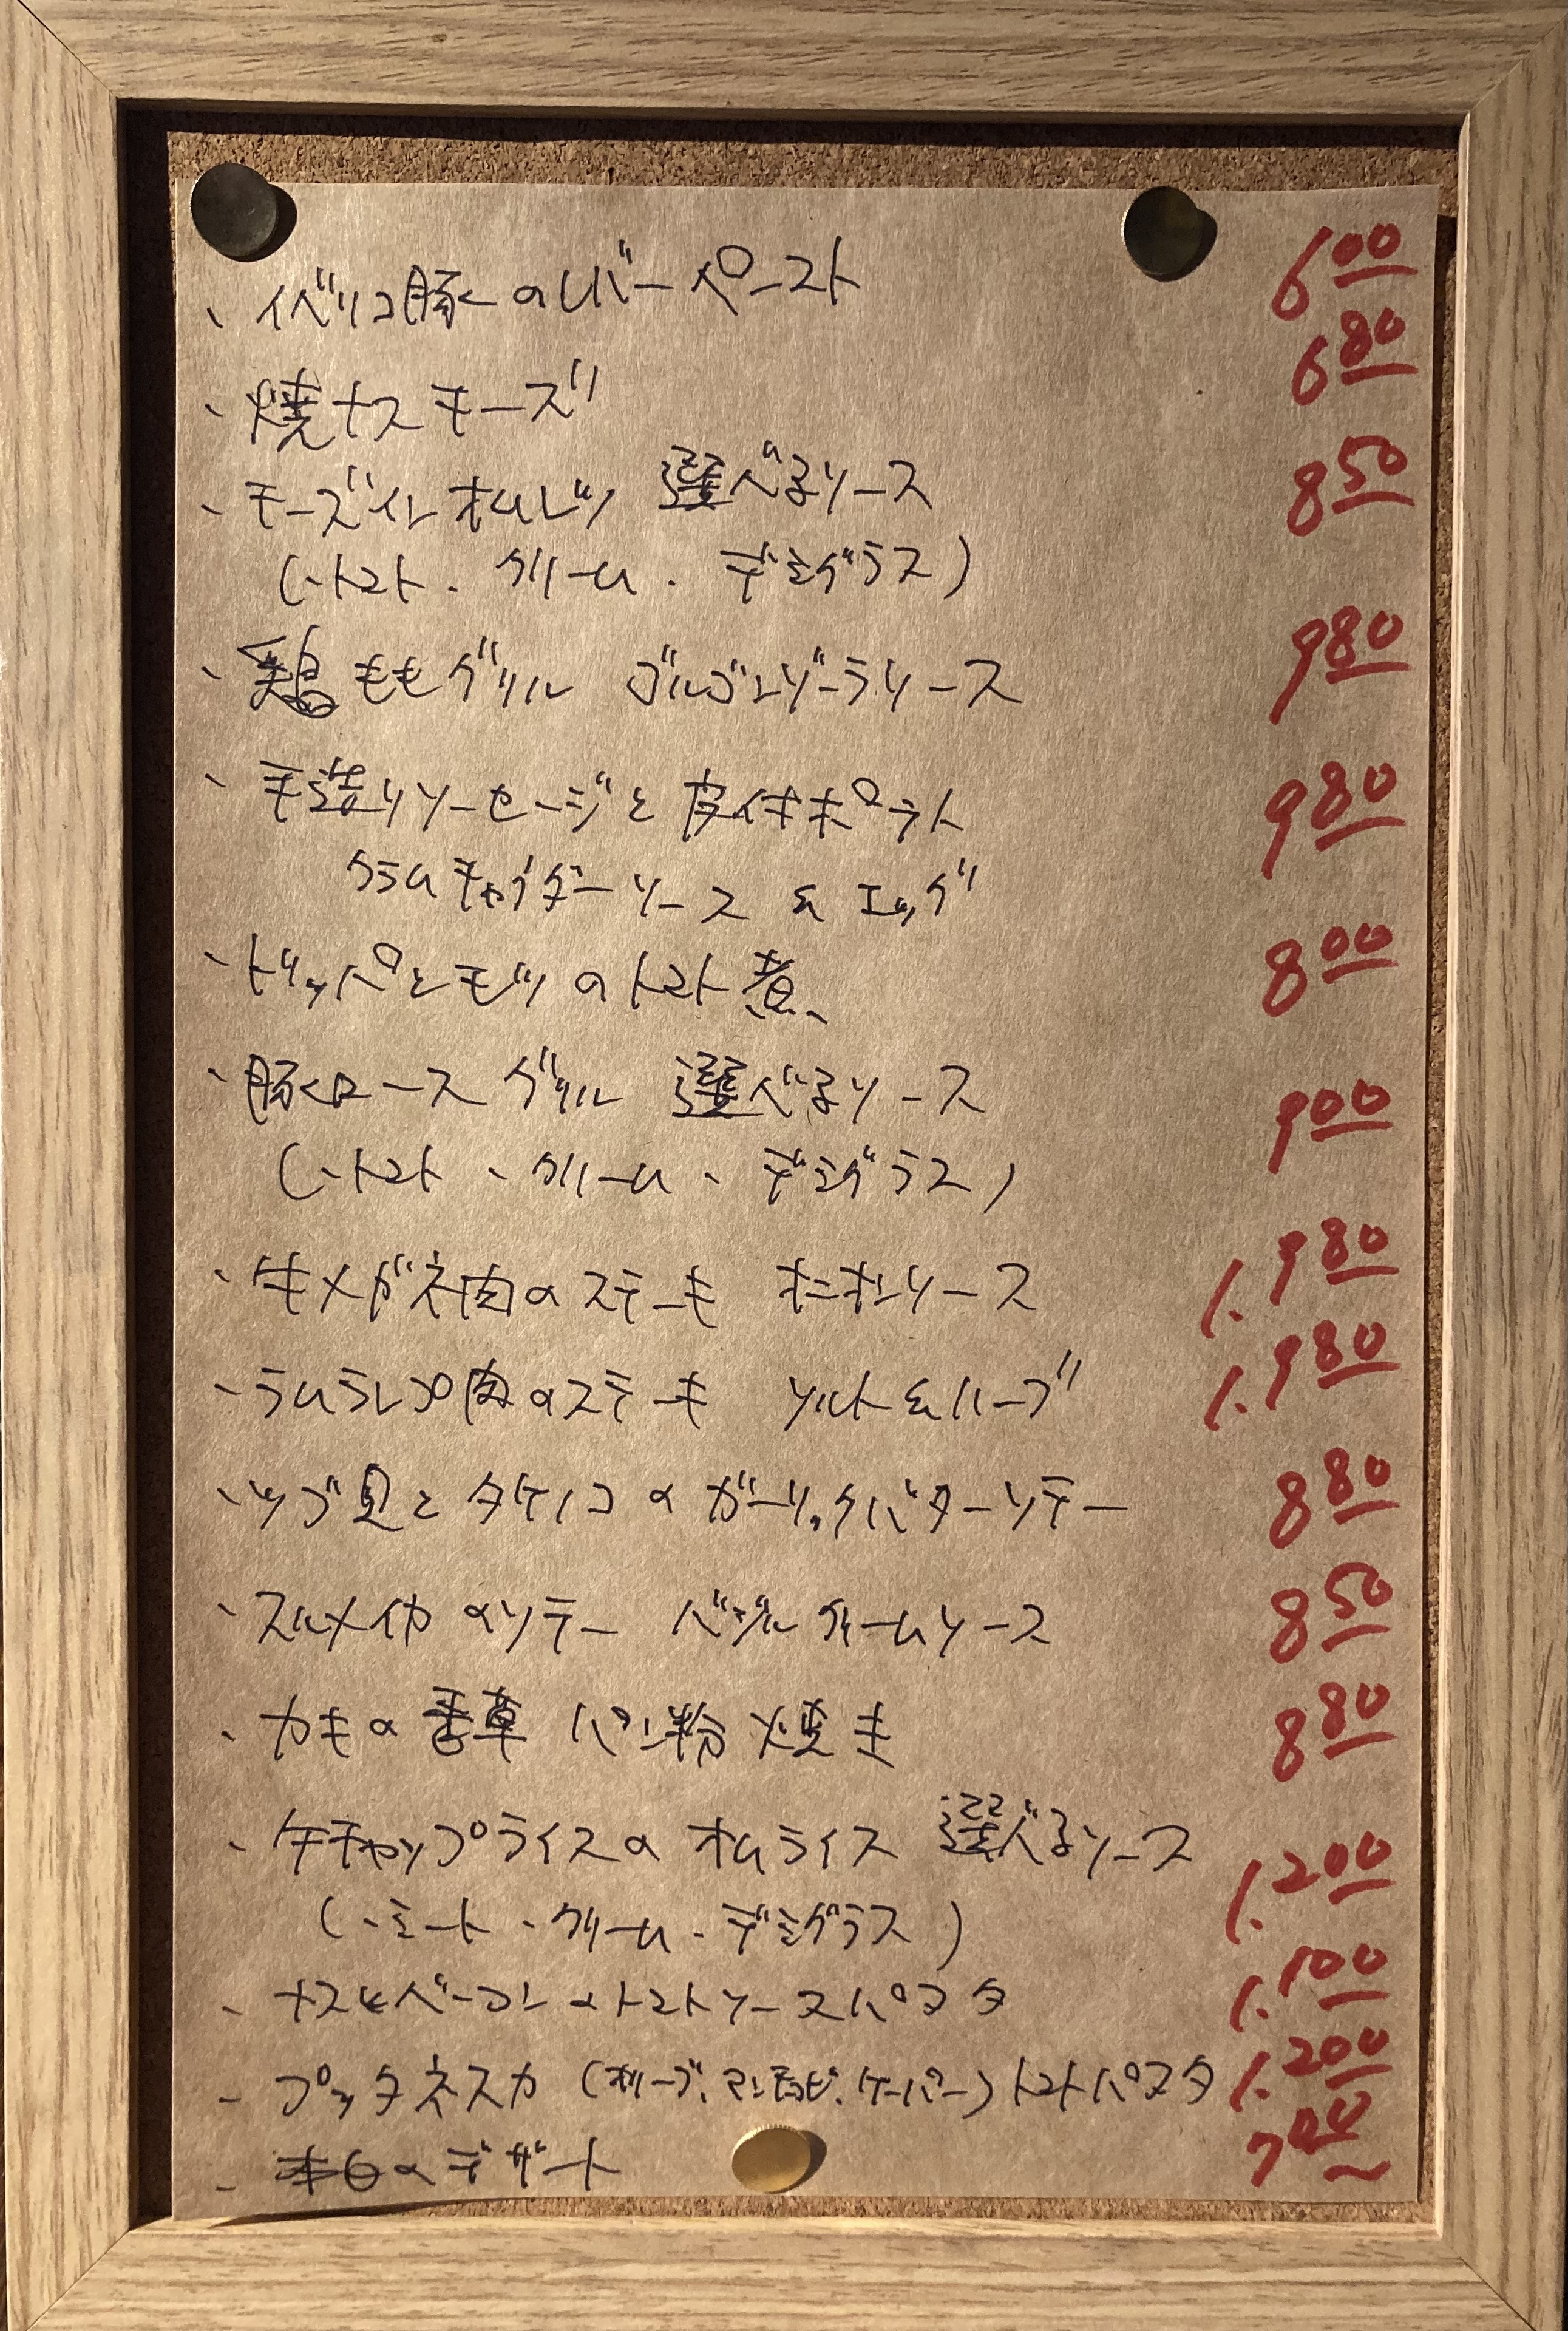 ・イベリコ豚のレバーペースト 600
・焼ナスチーズ 680
・チーズインオムレツ 選べるソース 850
(・トマト・クリーム・デミグラス)
・鶏ももグリル ゴルゴンゾーラソース 980
・手造りソーセージと皮付ポテト 980
クラムチャウダーソース & エッグ
・トリッパとモツのトマト煮 800
・豚ロースグリル 選べるソース 900
(・トマト・クリーム・デミグラス)
・牛メガネ肉のステーキ オニオンソース 1.980
・ラムランプ肉のステーキ ソルト&ハーブ 1.980
・ツブ貝とタケノコのガーリックバターソテー 880
・スルメイカのソテー バジルクリームソース 850
・カキの香草パン粉焼き 880
・ケチャップライスのオムライス 選べるソース 1.200
(・ミート・クリーム・デミグラス)
・ナスとベーコンのトマトソースパスタ 1.100
・プッタネスカ(オリーブ、アンチョビ、ケーパー)トマトパスタ 1.200
・本日のデザート 700